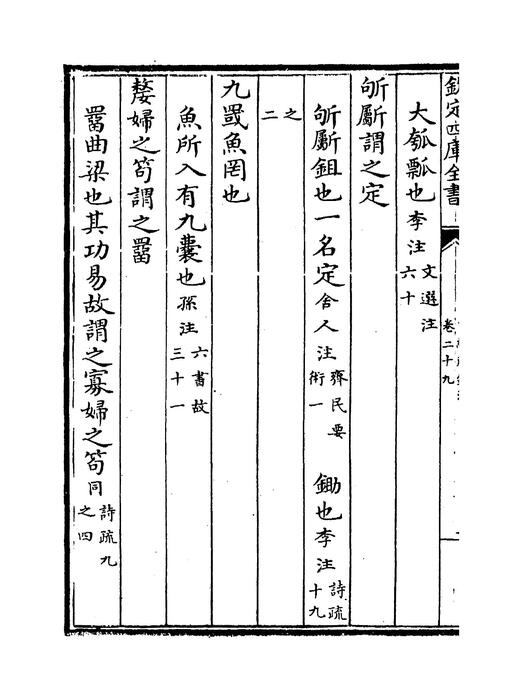 欽定四庫全書
卷二十九
大瓠瓢也李注文選注六十
斪斸謂之定
斪斸鉏也一名定舍人注齊民要術一 鋤也李注詩疏十九
之二
九罭魚罔也
魚所入有九囊也孫注六書故三十一
嫠婦之笱謂之罶
罶曲梁也其功易故謂之寡婦之笱同詩疏九之四